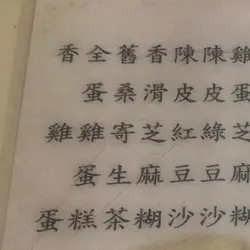 雞蛋芝麻糊
陳皮綠豆沙
陳皮紅豆沙
香滑芝麻糊
舊桑寄生茶
全蛋雞蛋糕
香雞蛋